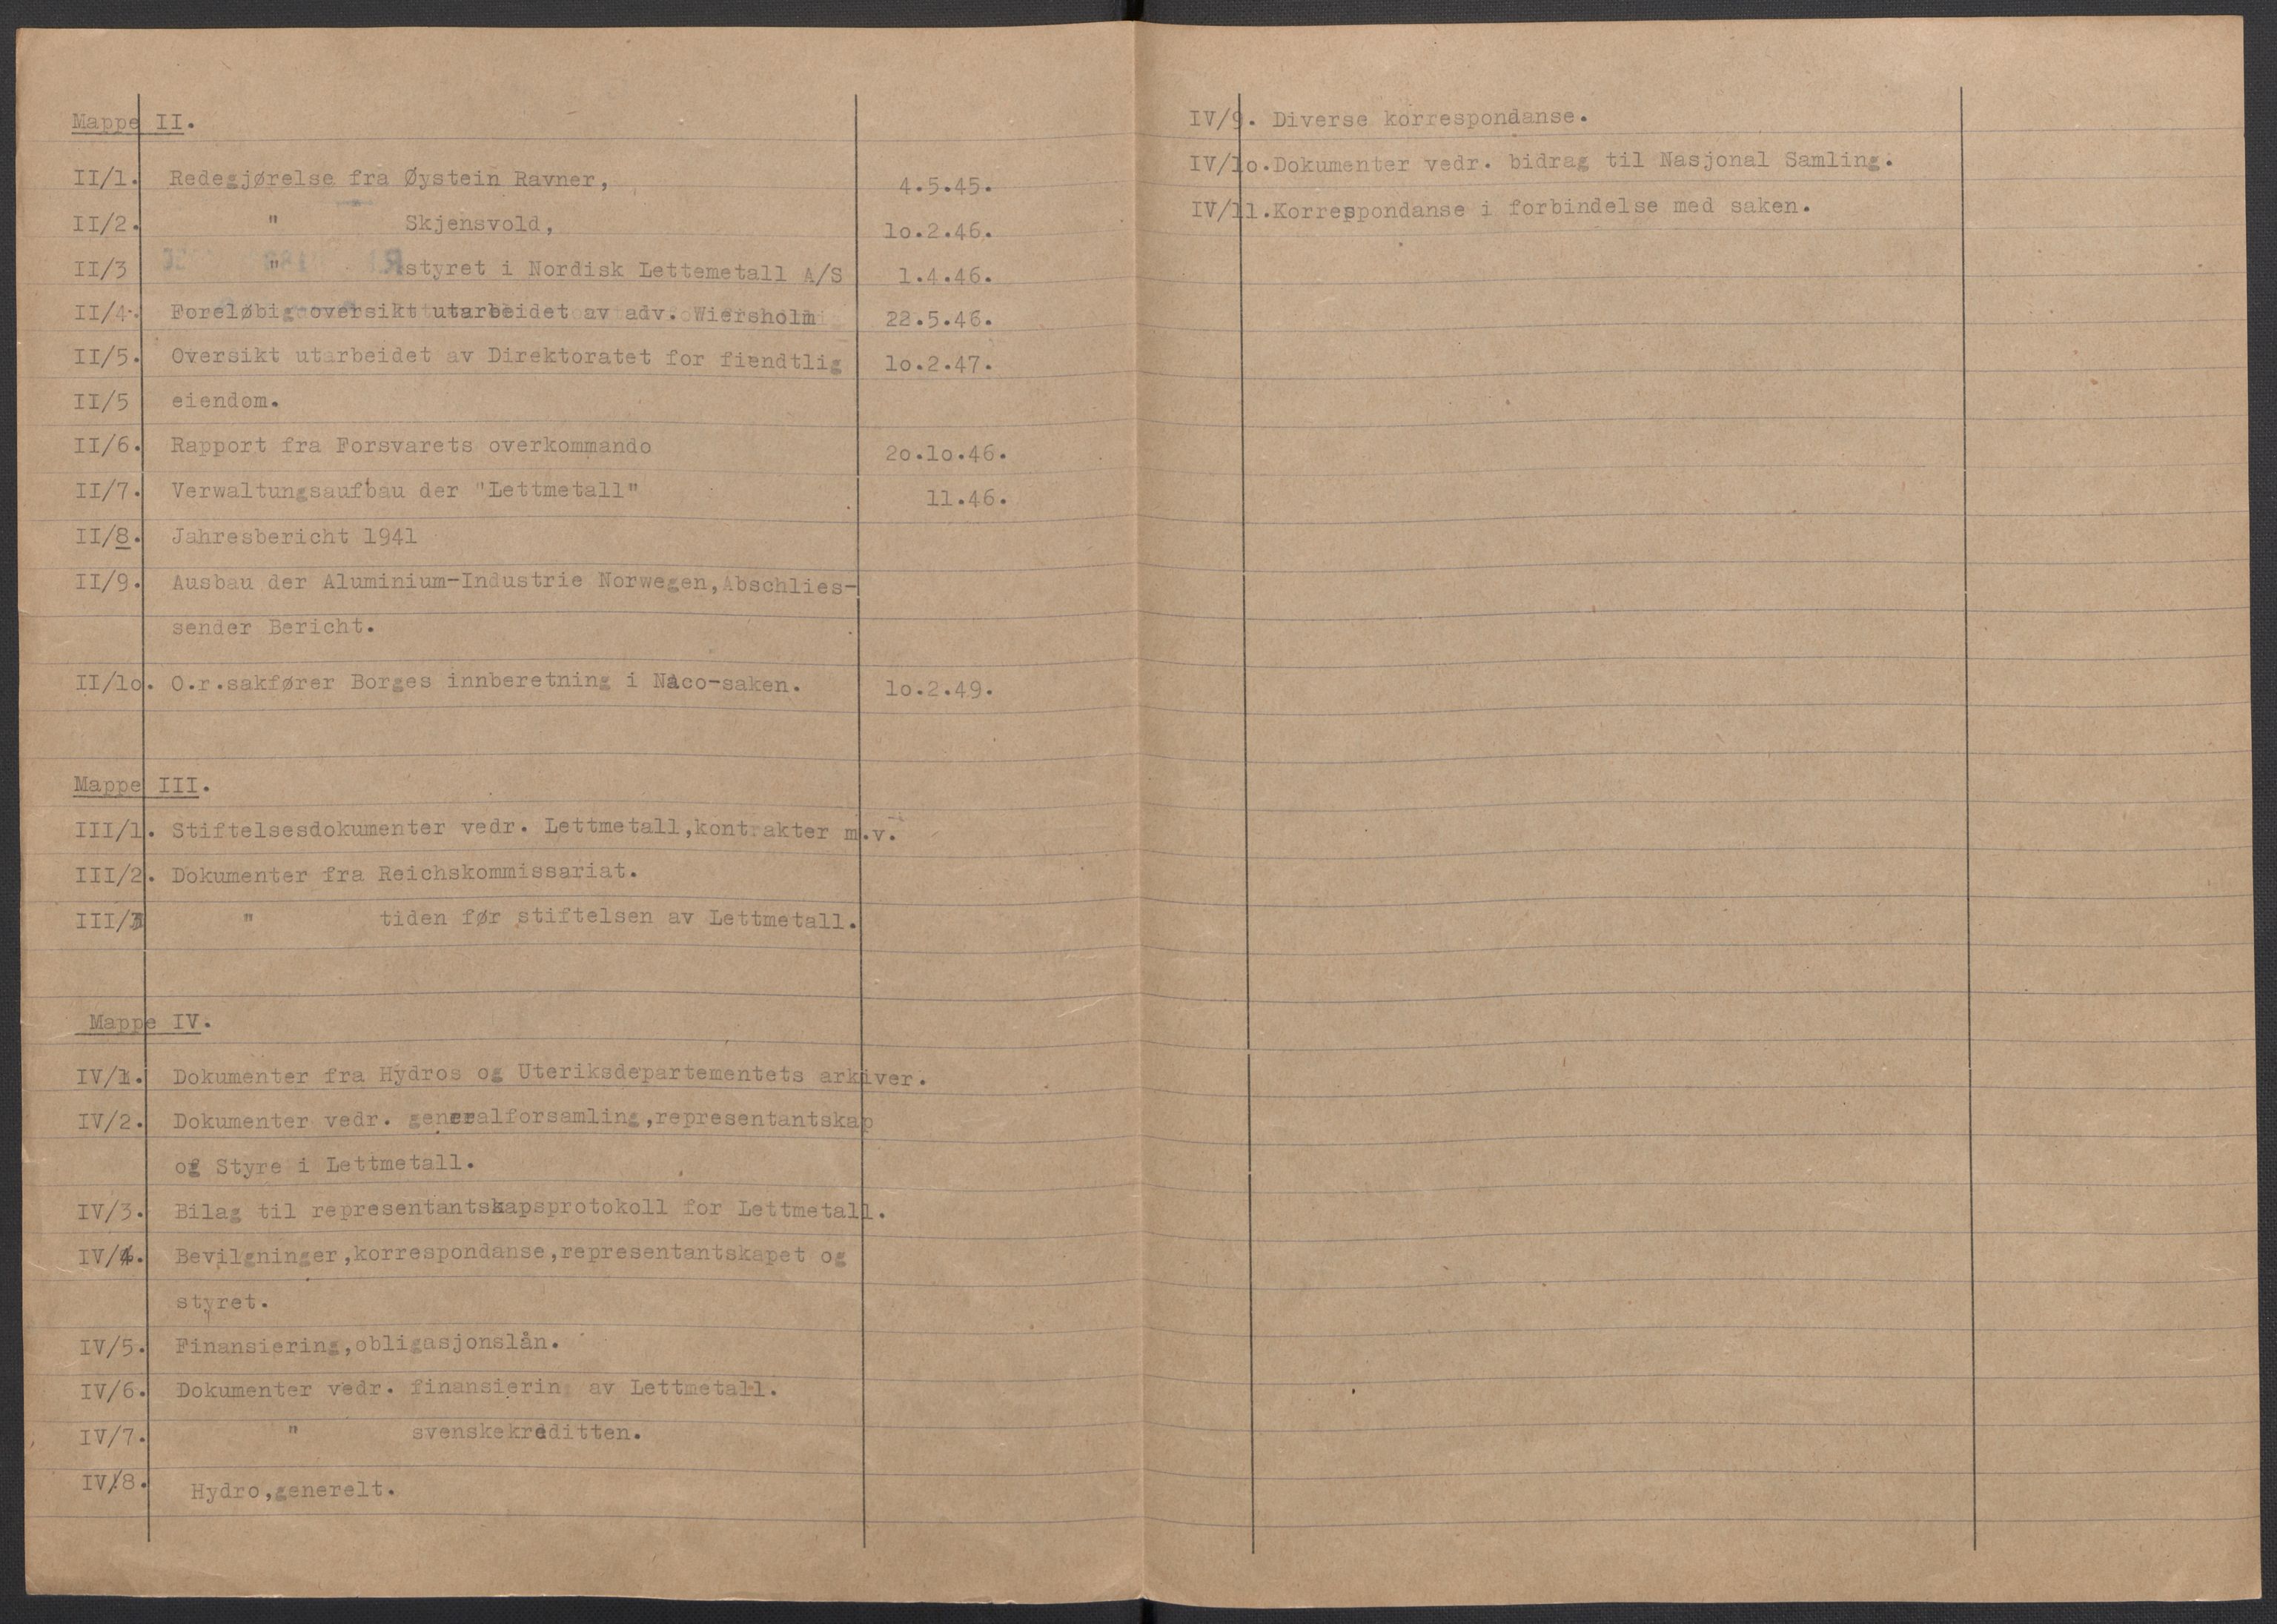 Mappe II.
II/1. Redegjørelse fra Øystein Ravner, 4.5.45.
II/2. " Skjensvold, lo.2.46.
II/3 " styret i Nordisk Lettemetall A/S 1.4.46.
II/4. Foreløbig oversikt utarbeidet av adv. Wiersholm 22.5.46.
II/5. Oversikt utarbeidet av Direktoratet for fiendtlig lo.2.47.
II/5 eiendom.
II/6. Rapport fra Forsvarets overkommando 2o.lo.46.
II/7. Verwaltungsaufbau der "Lettmetall" 11.46.
II/8. Jahresbericht 1941
II/9. Ausbau der Aluminium-Industrie Norwegen,Abschlies-
sender Bericht.
II/lo. O.r.sakfører Borges innberetning i Naco-saken. lo.2.49.
Mappe III.
III/1. Stiftelsesdokumenter vedr. Lettmetall,kontrakter m.v.
III/2. Dokumenter fra Reichskommissariat.
III/3 " tiden før stiftelsen av Lettmetall.
Mappe IV.
IV/1. Dokumenter fra Hydros og Uteriksdepartementets arkiver.
IV/2. Dokumenter vedr. generalforsamling,representantskap
og Styre i Lettmetall.
IV/3. Bilag til representantskapsprotokoll for Lettmetall.
IV/4. Bevilgninger,korrespondanse,representantskapet og
styret.
IV/5. Finansiering,obligasjonslån.
IV/6. Dokumenter vedr. finansiering av Lettmetall.
IV/7. " svenskekreditten.
IV/8. Hydro,generelt.
IV/9. Diverse korrespondanse.
IV/lo. Dokumenter vedr. bidrag til Nasjonal Samling.
IV/11. Korrespondanse i forbindelse med saken.